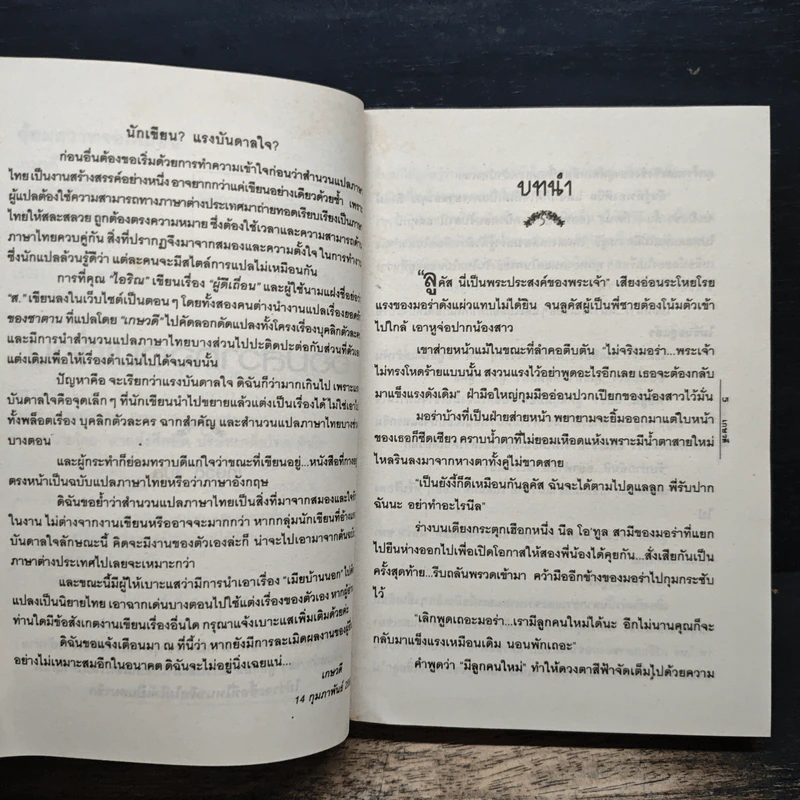 นักเขียน? แรงบันดาลใจ?
ก่อนอื่นต้องขอเริ่มด้วยการทำความเข้าใจก่อนว่าสำนวนแปลภาษา
ไทยเป็นงานสร้างสรรค์อย่างหนึ่ง อาจยากกว่าแค่เขียนอย่างเดียวด้วยซ้ำ เพราะ
ผู้แปลต้องใช้ความสามารถทางภาษาต่างประเทศมาถ่ายทอดเรียบเรียงเป็นภาษา
ไทยให้สละสลวย ถูกต้องตรงความหมาย ซึ่งต้องใช้เวลาและความสามารถด้าน
ภาษาไทยควบคู่กัน สิ่งที่ปรากฏจึงมาจากสมองและความตั้งใจ ในการทำงาน
ซึ่งนักแปลล้วนรู้ดีว่า แต่ละคนจะมีสไตล์การแปลไม่เหมือนกัน
การที่คุณ "ไอริณ" เขียนเรื่อง "ผู้ดีเถื่อน" และผู้ใช้นามแฝงชื่อย่อว่า
"ส." เขียนลงในเว็บไซต์เป็นตอนๆ โดยทั้งสองคนต่างนำงานแปลเรื่องยอดรัก
ของซาตาน ที่แปลโดย "เกษวดี" ไปคัดลอกดัดแปลงทั้งโครงเรื่องบุคลิกตัวละคร
และมีการนำสำนวนแปลภาษาไทยบางส่วนไปปะติดปะต่อกับส่วนที่ตัวเอง
แต่งเติมเพื่อให้เรื่องดำเนินไปได้จนจบนั้น
ปัญหาคือ จะเรียกว่าแรงบันดาลใจ ดิฉันก็ว่ามากเกินไป เพราะแรง
บันดาลใจคือจุดเล็กๆ ที่นักเขียนนำไปขยายแล้วแต่งเป็นเรื่องได้ ไม่ใช่เอาไป
ทั้งพล็อตเรื่อง บุคลิกตัวละคร ฉากสำคัญ และสำนวนแปลภาษาไทยบางช่วง
บางตอน
และผู้กระทำก็ย่อมทราบดีแก่ใจว่าขณะที่เขียนอยู่...หนังสือที่กางอยู่
ตรงหน้าเป็นฉบับแปลภาษาไทยหรือว่าภาษาอังกฤษ
ดิฉันขอย้ำว่าสำนวนแปลภาษาไทยเป็นสิ่งที่มาจากสมองและใจรัก
ในงาน ไม่ต่างจากงานเขียนหรืออาจจะมากกว่า หากกลุ่มนักเขียนที่อ้างแรง
บันดาลใจลักษณะนี้ คิดจะมีงานของตัวเองล่ะก็ น่าจะไปเอามาจากต้นฉบับ
ภาษาต่างประเทศไปเลยจะเหมาะกว่า
และขณะนี้มีผู้ให้เบาะแสว่ามีการนำเอาเรื่อง "เมียบ้านนอก" ไปดัด
แปลงเป็นนิยายไทย เอาฉากเด่นบางตอนไปใช้แต่งเรื่องของตัวเอง หากผู้อ่าน
ท่านใดมีข้อสังเกตงานเขียนเรื่องอื่นใด กรุณาแจ้งเบาะแสเพิ่มเติมด้วยค่ะ
ดิฉันขอแจ้งเตือนมา ณ ที่นี้ว่า หากยังมีการละเมิดผลงานของผู้อื่น
อย่างไม่เหมาะสมอีกในอนาคต ดิฉันจะไม่อยู่นิ่งเฉยแน่...
เกษวดี
14 กุมภาพันธ์
บทนำ
"ลูคัส นี่เป็นพระประสงค์ของพระเจ้า" เสียงอ่อนระโหยโรย
แรงของมอร่าดังแผ่วแทบไม่ได้ยิน จนลูคัสผู้เป็นพี่ชายต้องโน้มตัวเข้า
ไปใกล้ เอาหูจ่อปากน้องสาว
เขาส่ายหน้าแม้ในขณะที่ลำคอตีบตัน "ไม่จริงมอร่า...พระเจ้า
ไม่ทรงโหดร้ายแบบนั้น สงวนแรงไว้อย่าพูดอะไรอีกเลย เธอจะต้องกลับ
มาแข็งแรงดังเดิม" ฝ่ามือใหญ่กุมมืออ่อนปวกเปียกของน้องสาวไว้มั่น
มอร่าบ้างที่เป็นฝ่ายส่ายหน้า พยายามจะยิ้มออกมาแต่ใบหน้า
ของเธอก็ซีดเซียว คราบน้ำตาที่ไม่ยอมเหือดแห้งเพราะมีน้ำตาสายใหม่
ไหลรินลงมาจากหางตาทั้งคู่ไม่ขาดสาย
"เป็นยังงี้ก็ดีเหมือนกันลูคัส ฉันจะได้ตามไปดูแลลูก พี่รับปาก
ฉันนะ อย่าทำอะไรนีล"
ร่างบนเตียงกระตุกเฮือกหนึ่ง นีล โอ'ทูล สามีของมอร่าที่แยก
ไปยืนห่างออกไปเพื่อเปิดโอกาสให้สองพี่น้องได้คุยกัน...สั่งเสียกันเป็น
ครั้งสุดท้าย...รีบถลันพรวดเข้ามา คว้ามืออีกข้างของมอร่าไปกุมกระชับ
ไว้
"เลิกพูดเถอะมอร่า...เรามีลูกคนใหม่ได้นะ อีกไม่นานคุณก็จะ
กลับมาแข็งแรงเหมือนเดิม นอนพักเถอะ"
คำพูดว่า "มีลูกคนใหม่" ทำให้ดวงตาสีฟ้าจัดเต็มไปด้วยความ
5
เกษวดี